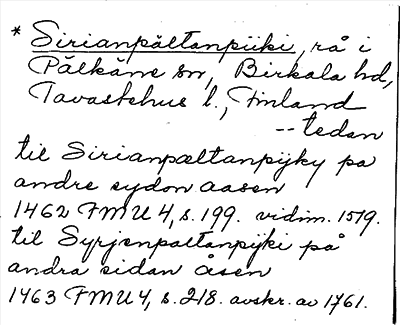 * Sirianpältanpiiki, rå i
Pälkäne sn, Birkala hd,
Tavastehus l., Finland
-- tedan
til Sirianpæltanpijky pa
andre sydon aasen
1462 FMU 4, s. 199. vidim. 1579.
til Syrjenpaltanpijki på
andra sidan åsen
1463 FMU 4, s. 218. avskr. av 1761.